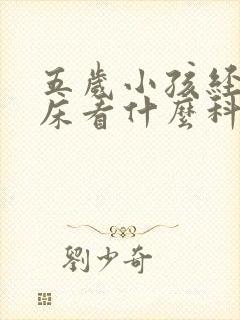 五歲小孩經
床看什麼科
劉少奇